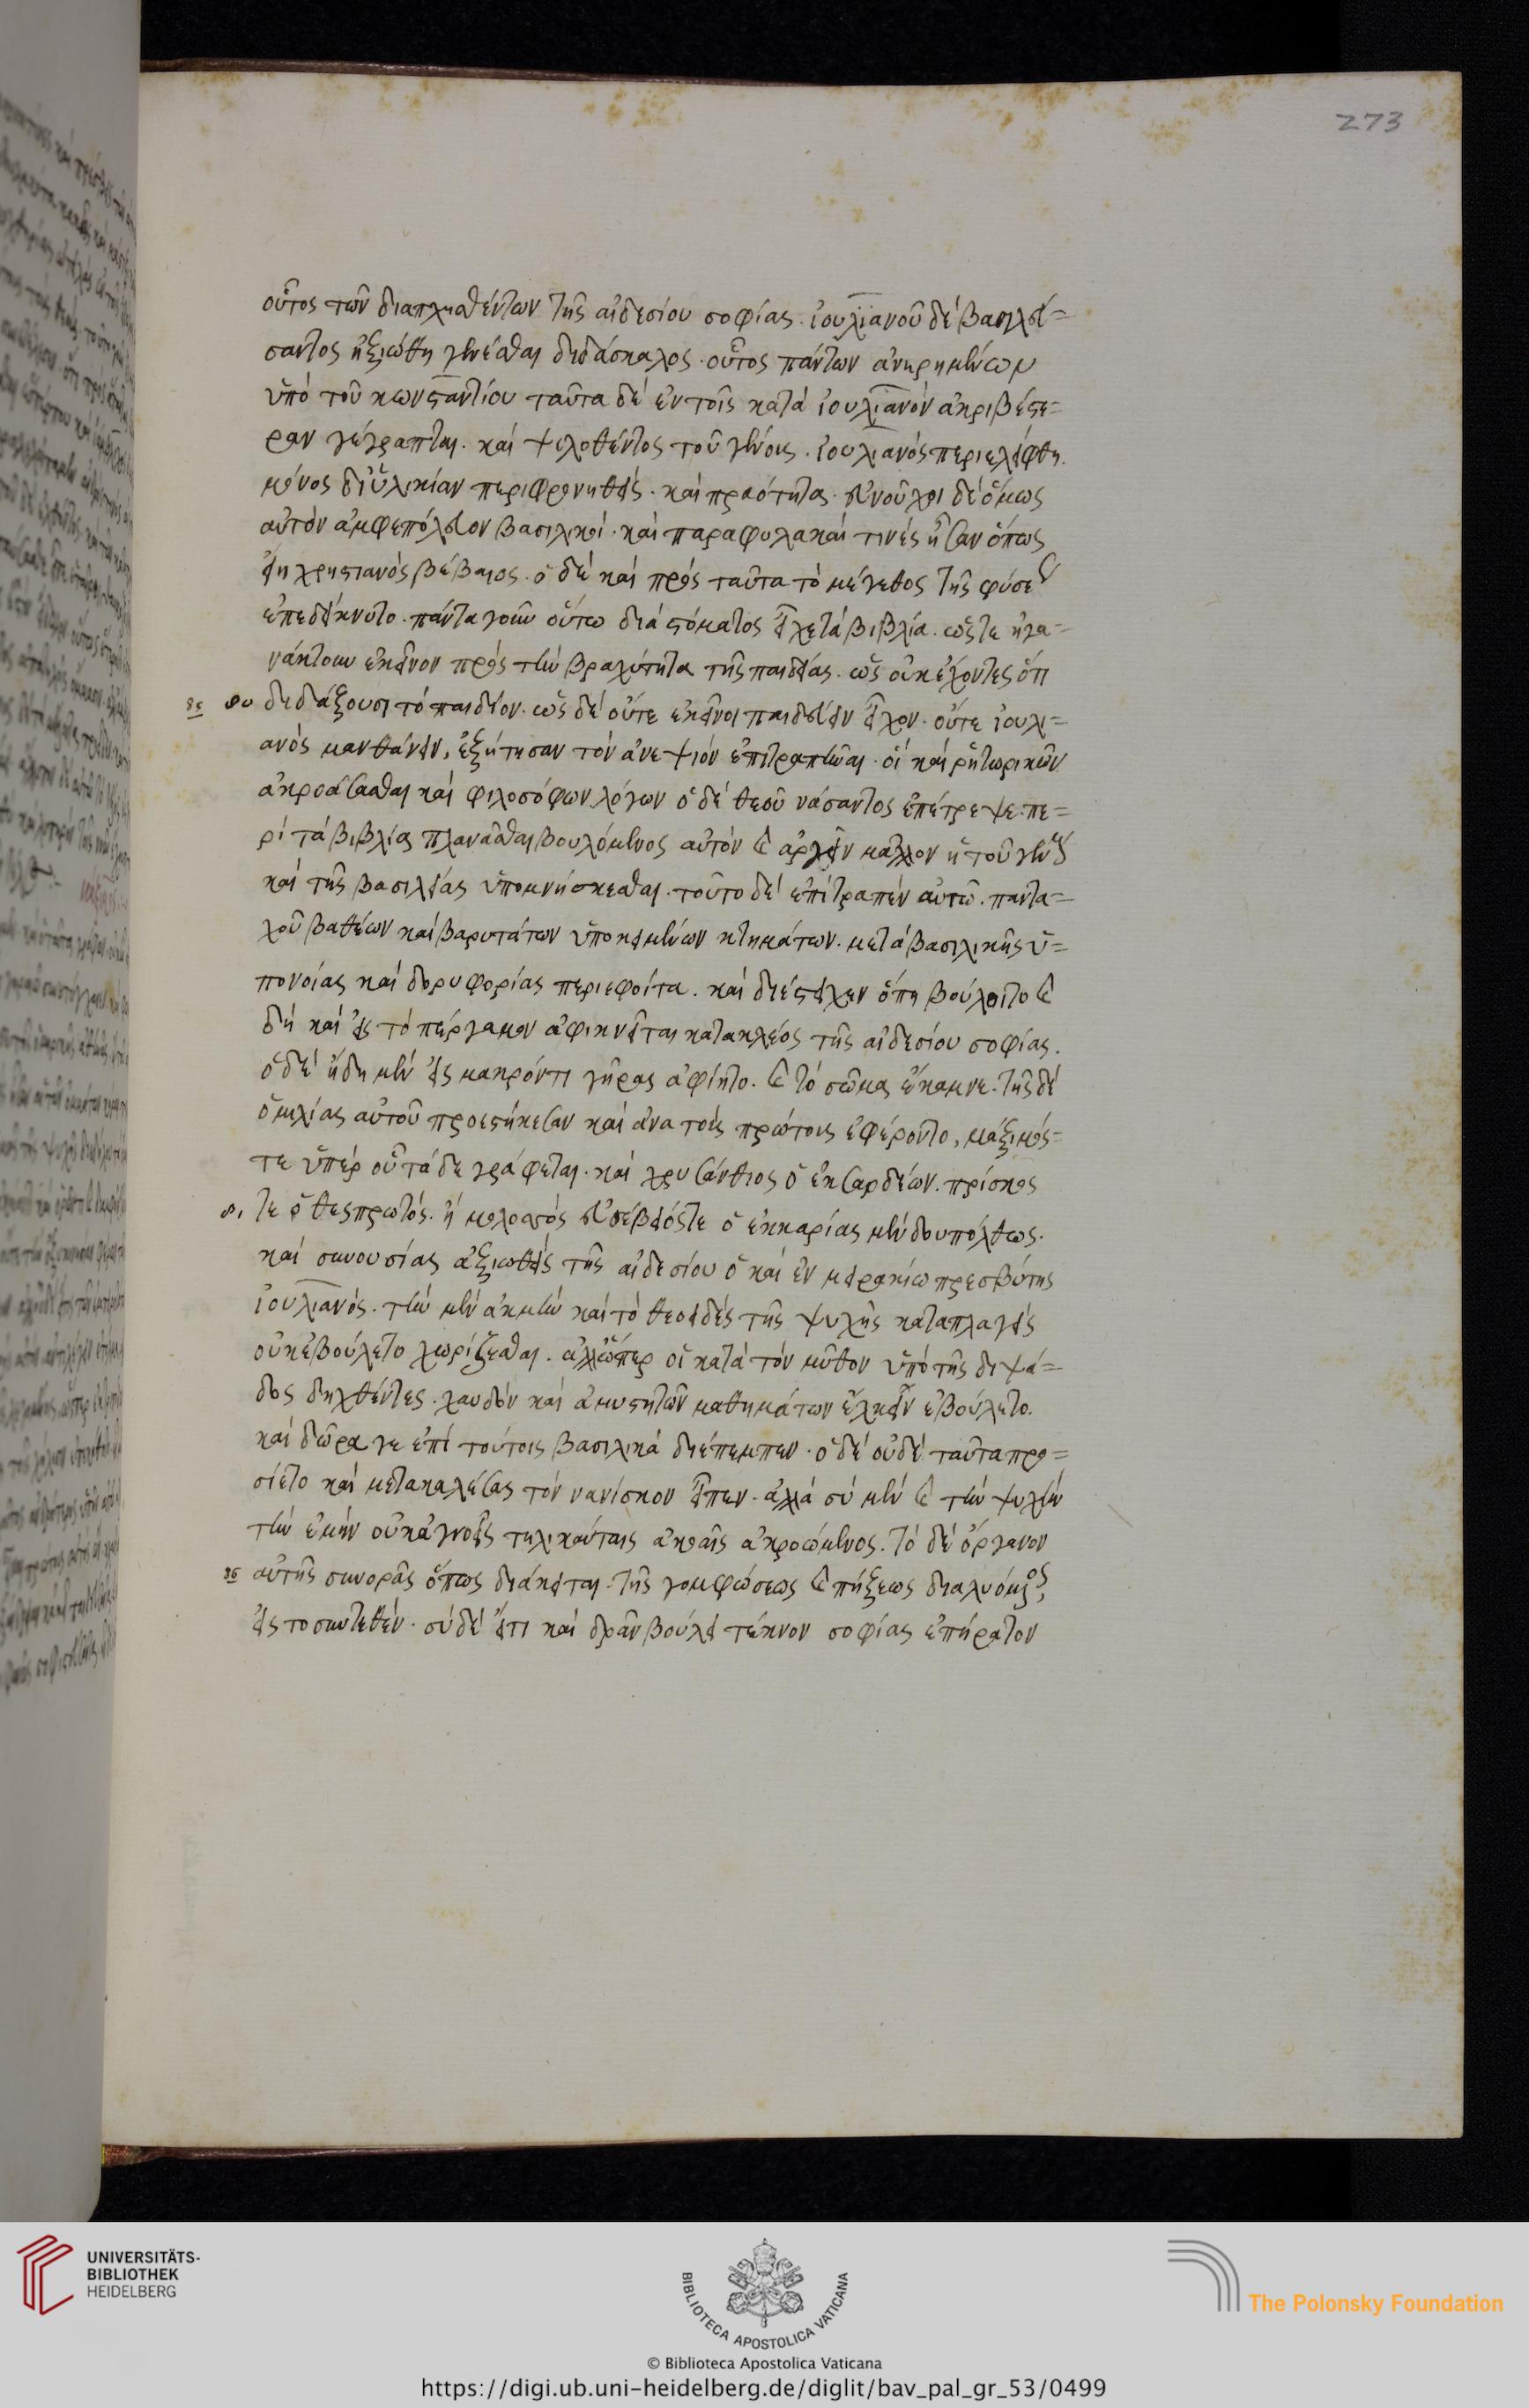 273
οὗτος τῶν διαπλησθέντων τῆς αἰδεσίου σοφίας. ἰουλιανοῦ δὲ βασιλεύ=
σαντος ἠξιώθη γενέσθαι διδάσκαλος. οὗτος πάντων ἀνῃρημένων
ὑπὸ τοῦ κωνσταντίου ταῦτα δὲ ἐν τοῖς κατὰ ἰουλιανὸν ἀκριβέστε=
ραν γέγραπται. καὶ ψιλοθέντος τοῦ γένους. ἰουλιανὸς περιελείφθη.
μόνος δι' ὑλικίαν περιφρονηθεὶς. καὶ πραότητα. εὐνοῦχοι δὲ ὅμως
αὐτὸν ἀμφεπόλευον βασιλικοί. καὶ παραφυλακαί τινές ἦσαν ὅπως
εἴη χριστιανὸς βέβαιος. ὁ δὲ καὶ πρὸς ταῦτα τὸ μέγεθος τῆς φύσεως
ἐπεδείκνυτο. πάντα γοῦν οὕτω διὰ στόματος εἶχε τὰ βιβλία. ὥστε ἠγα=
νάκτουν ἐκεῖνοι πρὸς τὴν βραχύτητα τῆς παιδείας. ὡς οὐκ ἔχοντες ὅτι
διδάξουσι τὸ παιδίον. ὡς δὲ οὔτε ἐκεῖνοι παιδεύειν εἶχον. οὔτε ἰουλι=
ανὸς μανθάνειν, ἐξῄτησαν τὸν ἀνεψιὸν ἐπιτραπῆναι. οἱ καὶ ῥητορικῶν
ἀκροάσασθαι καὶ φιλοσόφων λόγων ὁ δὲ θεοῦ νάσαντος ἐπέτρεψε. πε=
ρὶ τὰ βιβλία πλανᾶσθαι βουλόμενος αὐτὸν καὶ ἀργεῖν μᾶλλον ἢ τοῦ γένους
καὶ τῆς βασιλείας ὑπομνήσκεσθαι. τοῦτο δὲ ἐπιτραπὲν αὐτῷ. παντα=
χοῦ βαθέων καὶ βαρυτάτων ὑποκειμένων κτημάτων. μετὰ βασιλικῆς ὑ=
πονοίας καὶ δορυφορίας περιεφοίτα. καὶ διέστειχεν ὅπη βούλοιτο καὶ
δὴ καὶ εἰς τὸ πέργαμον ἀφικνεῖται κατακλέος τῆς αἰδεσίου σοφίας.
ὁ δὲ ἤδη μὲν εἰς μακρόν τι γῆρας ἀφίητο. καὶ τὸ σῶμα ἔκαμνε. τῆς δὲ
ὁμιλίας αὐτοῦ προεστήκεσαν καὶ ἀνα τοὺς πρώτους ἐφέροντο, μάξιμός=
τε ὑπὲρ οὗ τάδε γράφεται. καὶ χρυσάνθιος ὁ ἐκ σαρδέων. πρίσκος
τε ὁ θεσπρωτὸς. ἢ μολοσσὸς εὐσέβειός τε ὁ ἐκ καρίας μένδου πόλεως.
καὶ συνουσίας ἀξιωθεὶς τῆς αἰδεσίου ὁ καὶ ἐν μειρακίῳ πρεσβύτης
ἰουλιανός. τὴν μὲν ἀκμὴν καὶ τὸ θεοειδὲς τῆς ψυχῆς καταπλαγεὶς
οὐκ ἐβούλετο χωρίζεσθαι. ἀλλ' ὥσπερ οἱ κατὰ τὸν μῦθον ὑπὸ τῆς διψά=
δος δηχθέντες. χανδὸν καὶ ἀμυστὶ τῶν μαθημάτων ἕλκειν ἐβούλετο.
καὶ δῶρα γε ἐπὶ τούτοις βασιλικὰ διέπεμπεν. ὁ δὲ οὐδὲ ταῦτα προ=
σίετο καὶ μετακαλέσας τὸν νανίσκον εἶπεν. ἀλλὰ σὺ μὲν καὶ τὴν ψυχὴν
τὴν ἐμὴν οὐκ ἀγνοεῖς τηλικαύταις ἀκοαῖς ἀκροώμενος. τὸ δὲ ὄργανον
αὐτῆς συνορᾶς ὅπως διάκειται. τῆς γομφώσεως καὶ πήξεως διαλυόμενος,
εἰς τὸ συντεθέν. σὺ δὲ εἴ τι καὶ δρᾶν βούλει τέκνον σοφίας ἐπήρατον
UNIVERSITÄTS-
BIBLIOTHEK
HEIDELBERG
BIBLIOTECA APOSTOLICA VATICANA
The Polonsky Foundation
© Biblioteca Apostolica Vaticana
https://digi.ub.uni-heidelberg.de/diglit/bav_pal_gr_53/0499